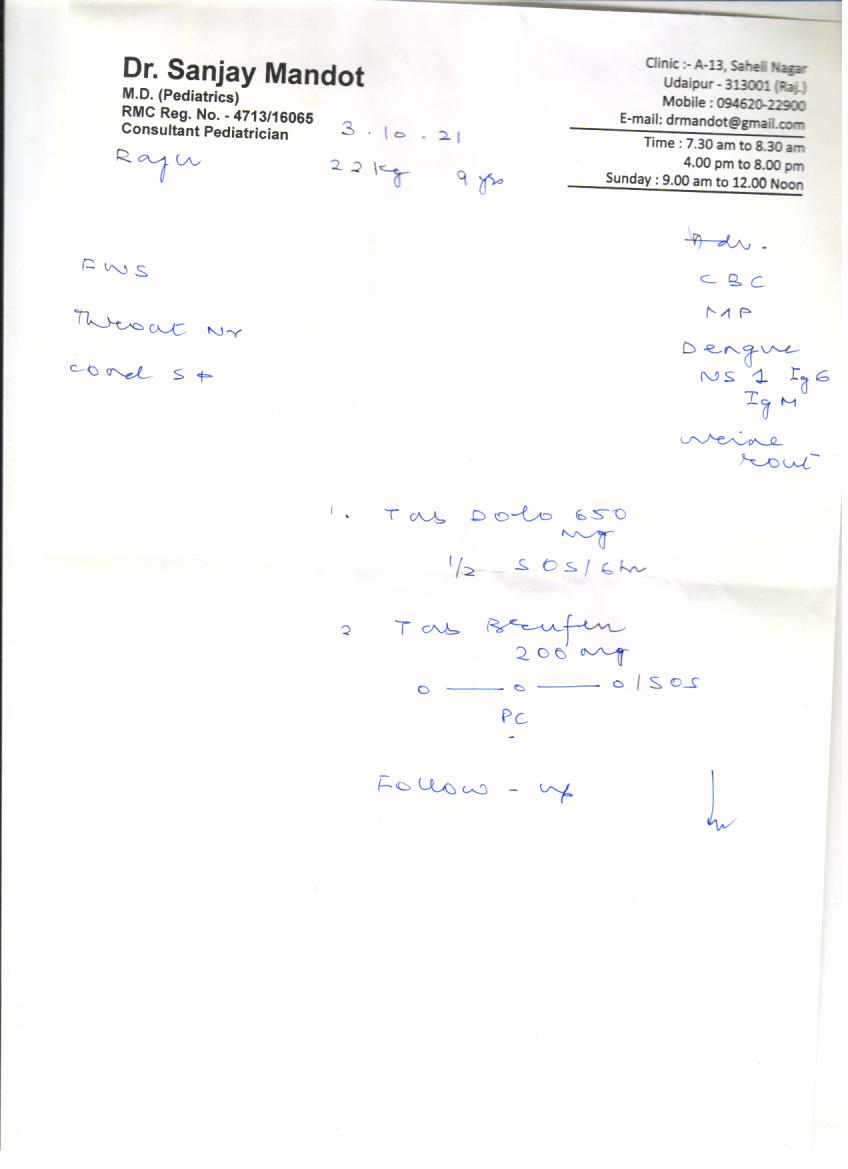 Dr. Sanjay Mandot
M.D. (Pediatrics)
RMC Reg. No. - 4713/16065
Consultant Pediatrician
Clinic :- A-13, Saheli Nagar
Udaipur - 313001 (Raj.)
Mobile : 094620-22900
E-mail: drmandot@gmail.com
Time : 7.30 am to 8.30 am
4.00 pm to 8.00 pm
Sunday : 9.00 am to 12.00 Noon
3.10.21
Raju 22 kg 9 yrs
Adv.
FWS
CBC
MP
Throat Nr
Dengue
Cond S
NS 1 IgG
IgM
Urine
rout
1. Tab Dolo 650
mg
1/2 SOS/6hr
2 Tab Brufen
200 mg
0 — 0 — 0/SOS
PC
Follow - up